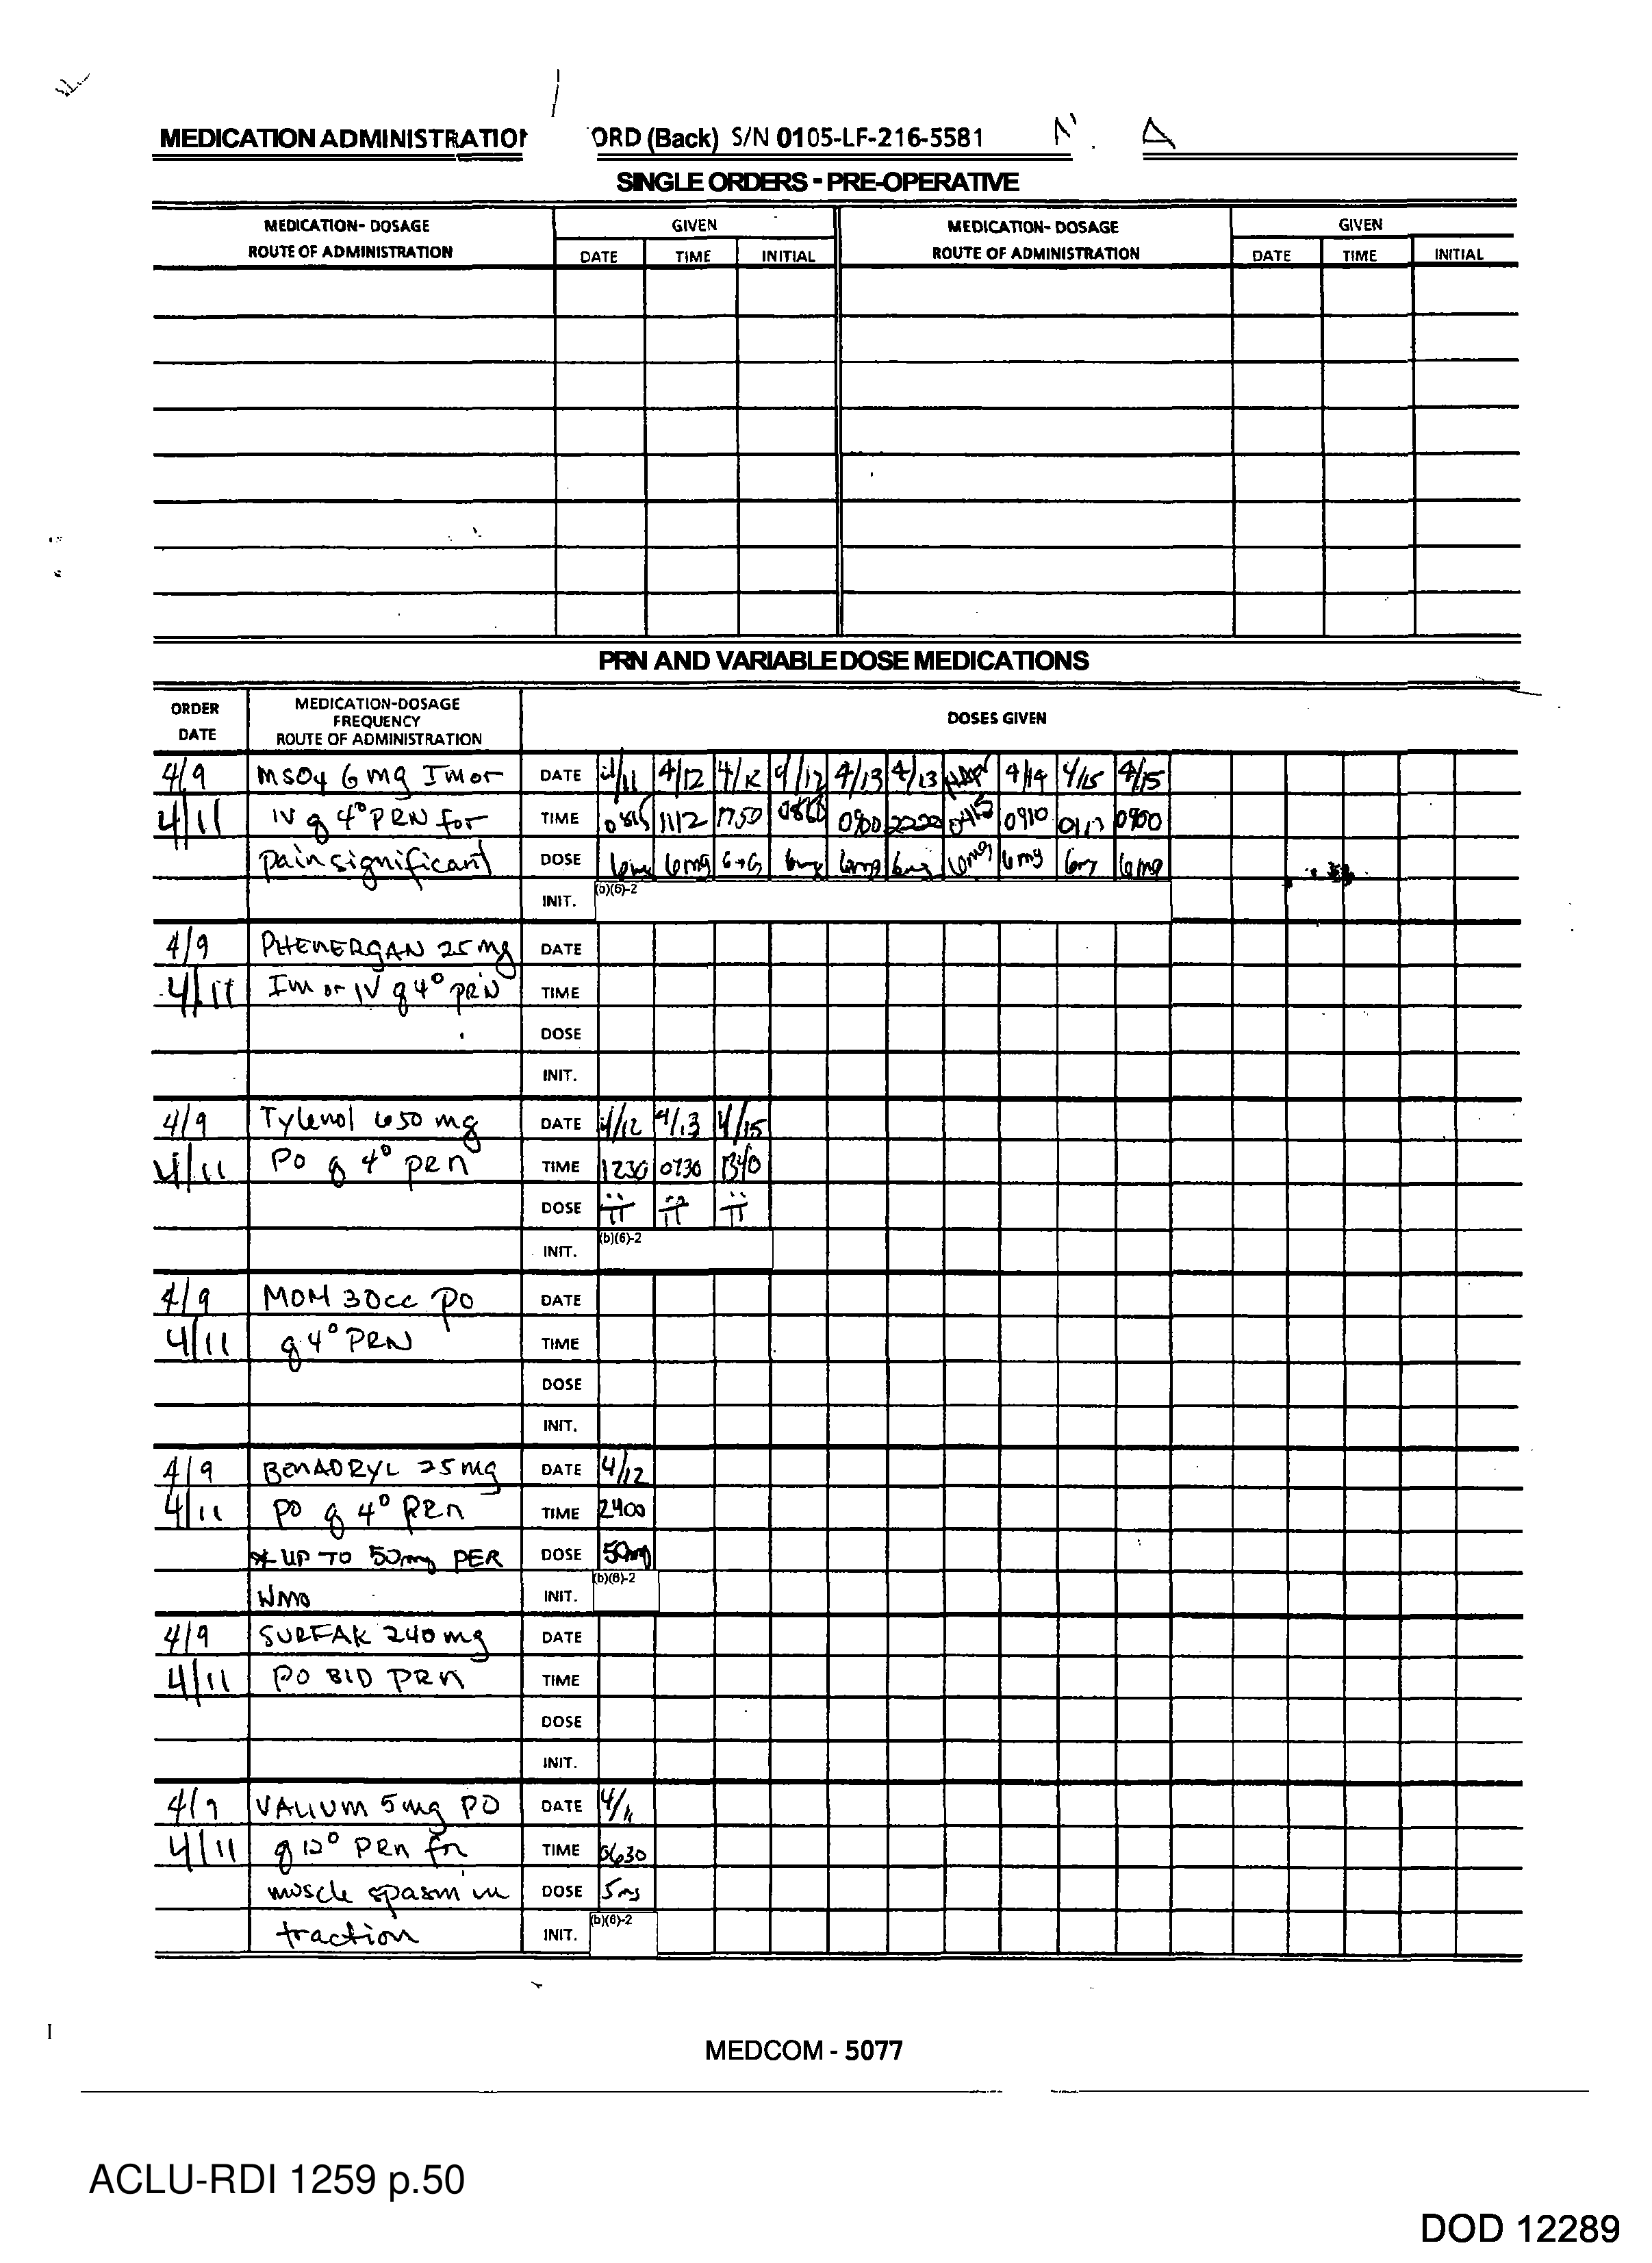 MEDICATION ADMINISTRATION ORD (Back) S/N 0105-LF-216-5581
SINGLE ORDERS - PRE-OPERATIVE
MEDICATION- DOSAGE GIVEN MEDICATION- DOSAGE GIVEN
ROUTE OF ADMINISTRATION DATE TIME INITIAL ROUTE OF ADMINISTRATION DATE TIME INITIAL
PRN AND VARIABLE DOSE MEDICATIONS
ORDER DATE MEDICATION-DOSAGE FREQUENCY ROUTE OF ADMINISTRATION DOSES GIVEN
4/9 MSO4 6 mg Im or DATE 4/11 4/12 4/12 4/12 4/13 4/13 4/14 4/15 4/15
4/11 IV q 4° PRN for TIME 0815 1112 1750 0900 2220 0415 0910 0900
pain significant DOSE 6mg 6mg 6mg 6mg 6mg 6mg 6mg 6mg 6mg
INIT. (b)(6)-2
4/9 PHENERGAN 25 mg DATE
4/11 Im or IV q 4° prn TIME
DOSE
INIT.
4/9 Tylenol 650 mg DATE 4/12 4/13 4/15
4/11 PO q 4° prn TIME 1230 0730 1340
DOSE ii ii ii
INIT. (b)(6)-2
4/9 MOM 30cc po DATE
4/11 q 4° PRN TIME
DOSE
INIT.
4/9 BENADRYL 25 mg DATE 4/12
4/11 PO q 4° PRn TIME 2400
* UP TO 50mg PER DOSE 50mg
WMO INIT. (b)(6)-2
4/9 SURFAK 240 mg DATE
4/11 PO BID PRN TIME
DOSE
INIT.
4/9 VALIUM 5 mg PO DATE 4/11
4/11 q 12° PRn for TIME 0630
muscle spasm in DOSE 5mg
traction INIT. (b)(6)-2
MEDCOM - 5077
ACLU-RDI 1259 p.50
DOD 12289